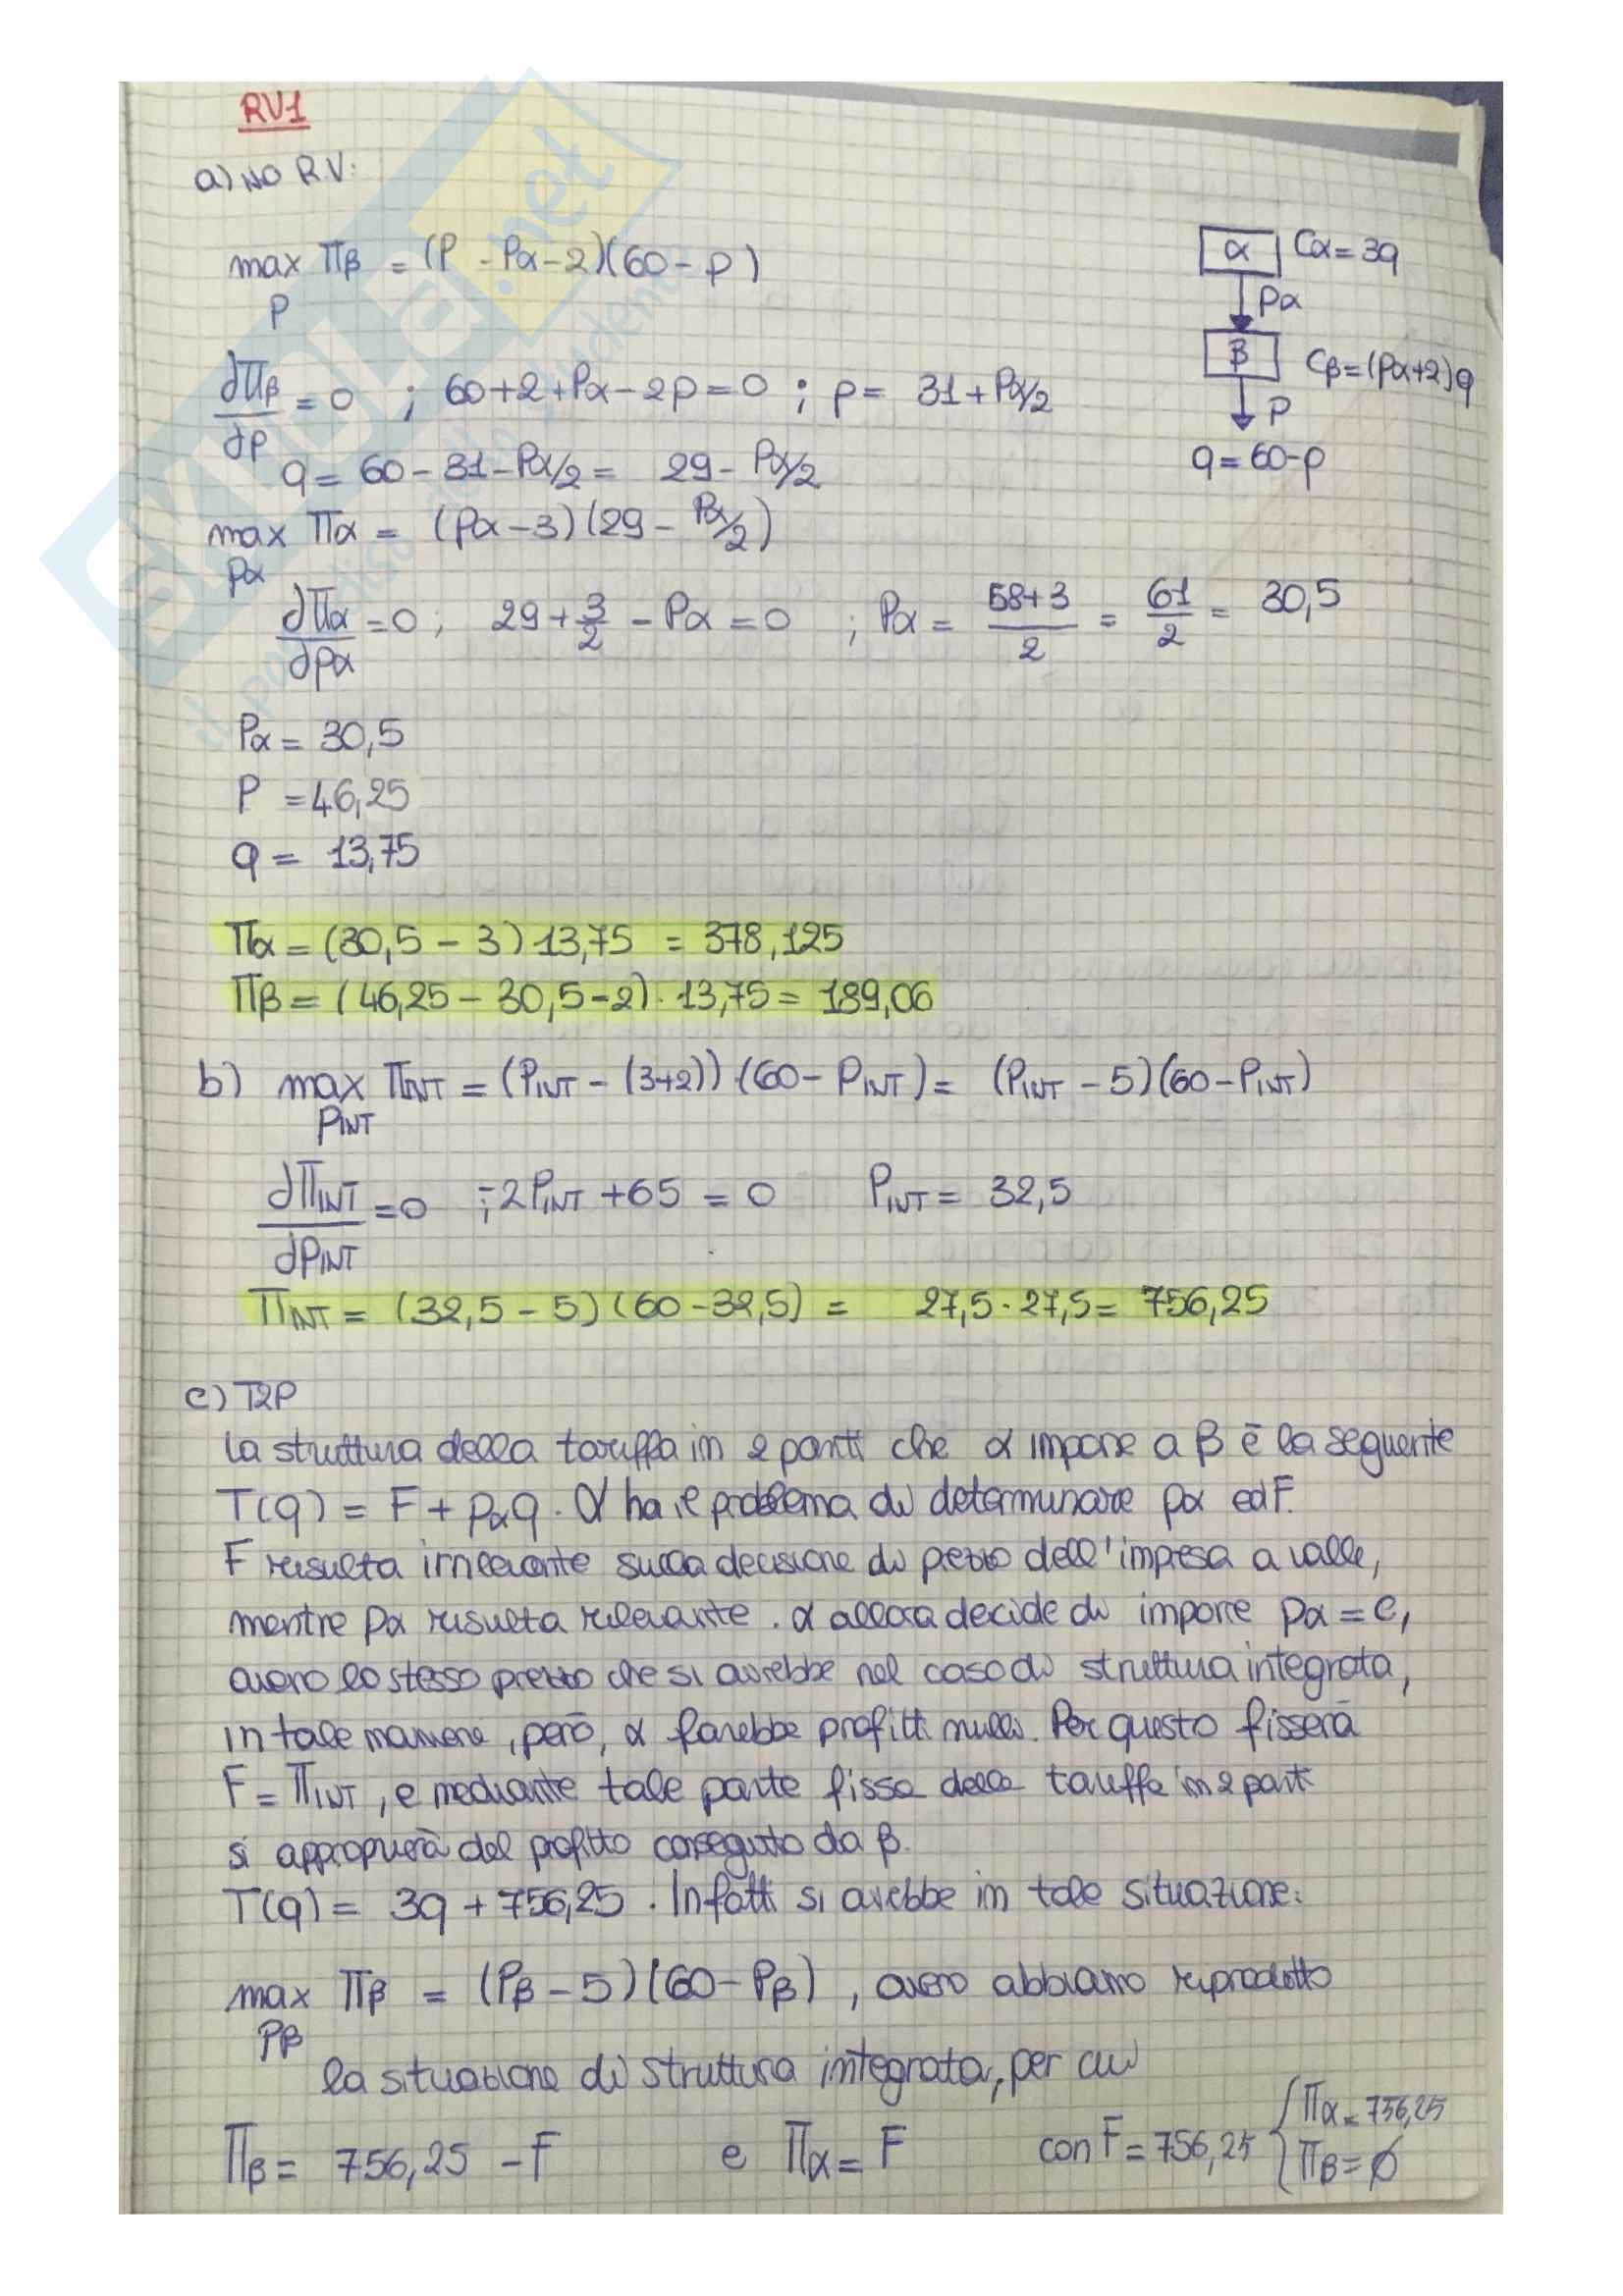 RV1
a) NO R.V.:
max Πβ = (P - Pα - 2)(60 - p)
P
∂Πβ/∂p = 0 ; 60+2+Pα-2p=0 ; p= 31+Pα/2
q= 60-31-Pα/2 = 29-Pα/2
max Πα = (pα-3)(29-Pα/2)
pα
∂Πα/∂pα = 0 ; 29+3/2 - Pα = 0 ; Pα = (58+3)/2 = 61/2 = 30,5
α Cα=3q
pα
β Cβ=(pα+2)q
P
q=60-p
Pα = 30,5
P = 46,25
q = 13,75
Πα = (30,5 - 3) 13,75 = 378,125
Πβ = (46,25 - 30,5 - 2) · 13,75 = 189,06
b) max ΠINT = (PINT - (3+2)) · (60 - PINT) = (PINT - 5)(60 - PINT)
PINT
∂ΠINT/∂PINT = 0 ; -2PINT + 65 = 0 PINT = 32,5
ΠINT = (32,5 - 5)(60 - 32,5) = 27,5 · 27,5 = 756,25
c) T2P
la struttura della tariffa in 2 parti che α impone a β è la seguente
T(q) = F + pαq. α ha il problema di determinare pα ed F.
F risulta irrilevante sulla decisione di prezzo dell'impresa a valle,
mentre pα risulta rilevante. α allora decide di imporre pα = c,
ovvero lo stesso prezzo che si avrebbe nel caso di struttura integrata,
in tale maniera, però, α farebbe profitti nulli. Per questo fisserà
F = ΠINT, e mediante tale parte fissa della tariffa in 2 parti
si approprierà del profitto conseguito da β.
T(q) = 3q + 756,25. Infatti si avrebbe in tale situazione:
max Πβ = (Pβ - 5)(60 - Pβ), ovvero abbiamo riprodotto
Pβ
la situazione di struttura integrata, per cui
Πβ = 756,25 - F e Πα = F con F = 756,25 { Πα = 756,25
Πβ = ∅
SKUOLA.net